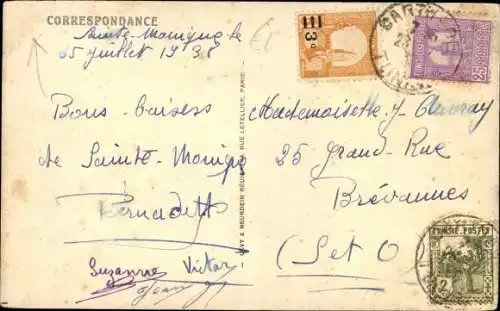 CORRESPONDANCE
Sainte-Monique le
25 juillet 1938
Bons baisers
de Sainte-Monique
Bernadette
Suzanne Victor
Jean
LEVY & NEURDEIN RÉUNIS RUE LETELLIER, PARIS
3c
25
TUNIS
Mademoiselle J.
25 Grand-Rue
Brévannes
(Set O
TUNISIE POSTES
2